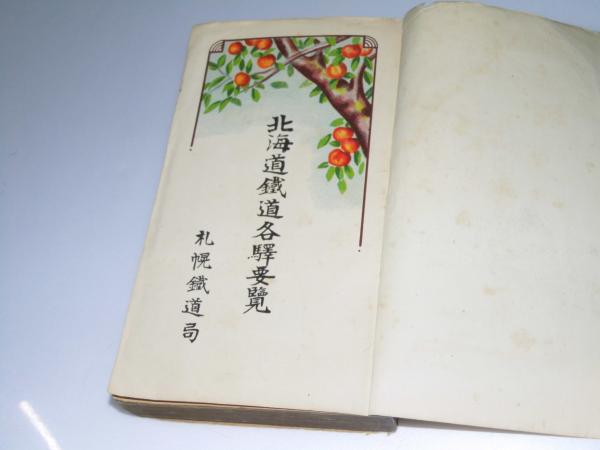 北海道鐵道各驛要覽
札幌鐵道局